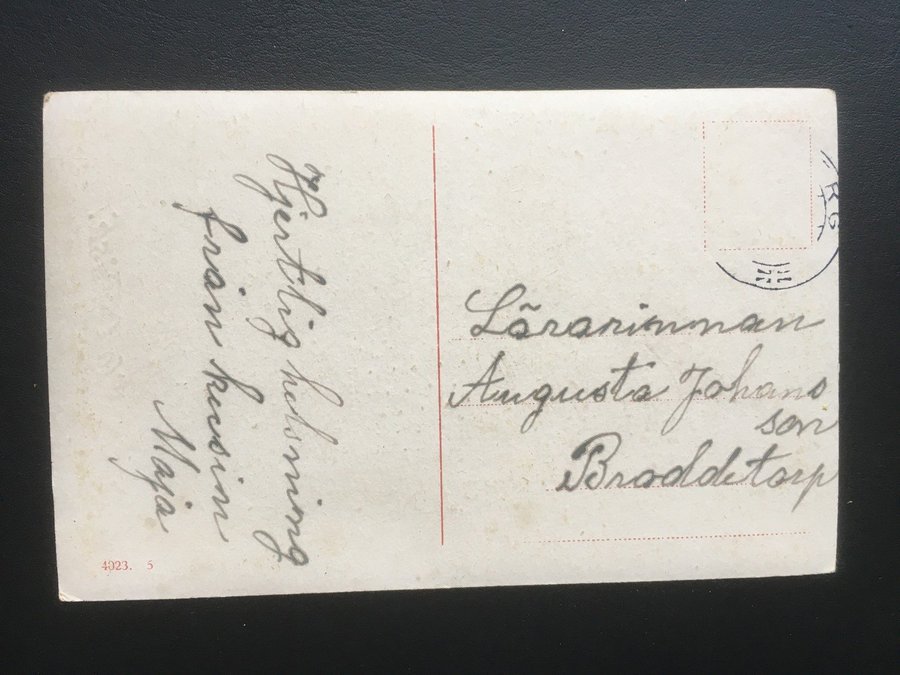 Hjertlig helsning
från kusin
Maja
4023. 5
RG
Lärarinnan
Augusta Johans
son
Broddetorp